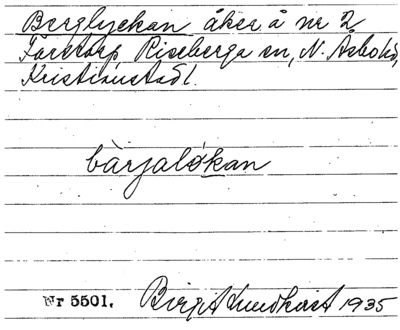 Berglyckan åker å nr 2
Färetorp, Riseberga sn, N. Åsbo hd,
Kristianstad l.
bàrjalǿkan
Nr 5501.
Birgit Lundkvist 1935